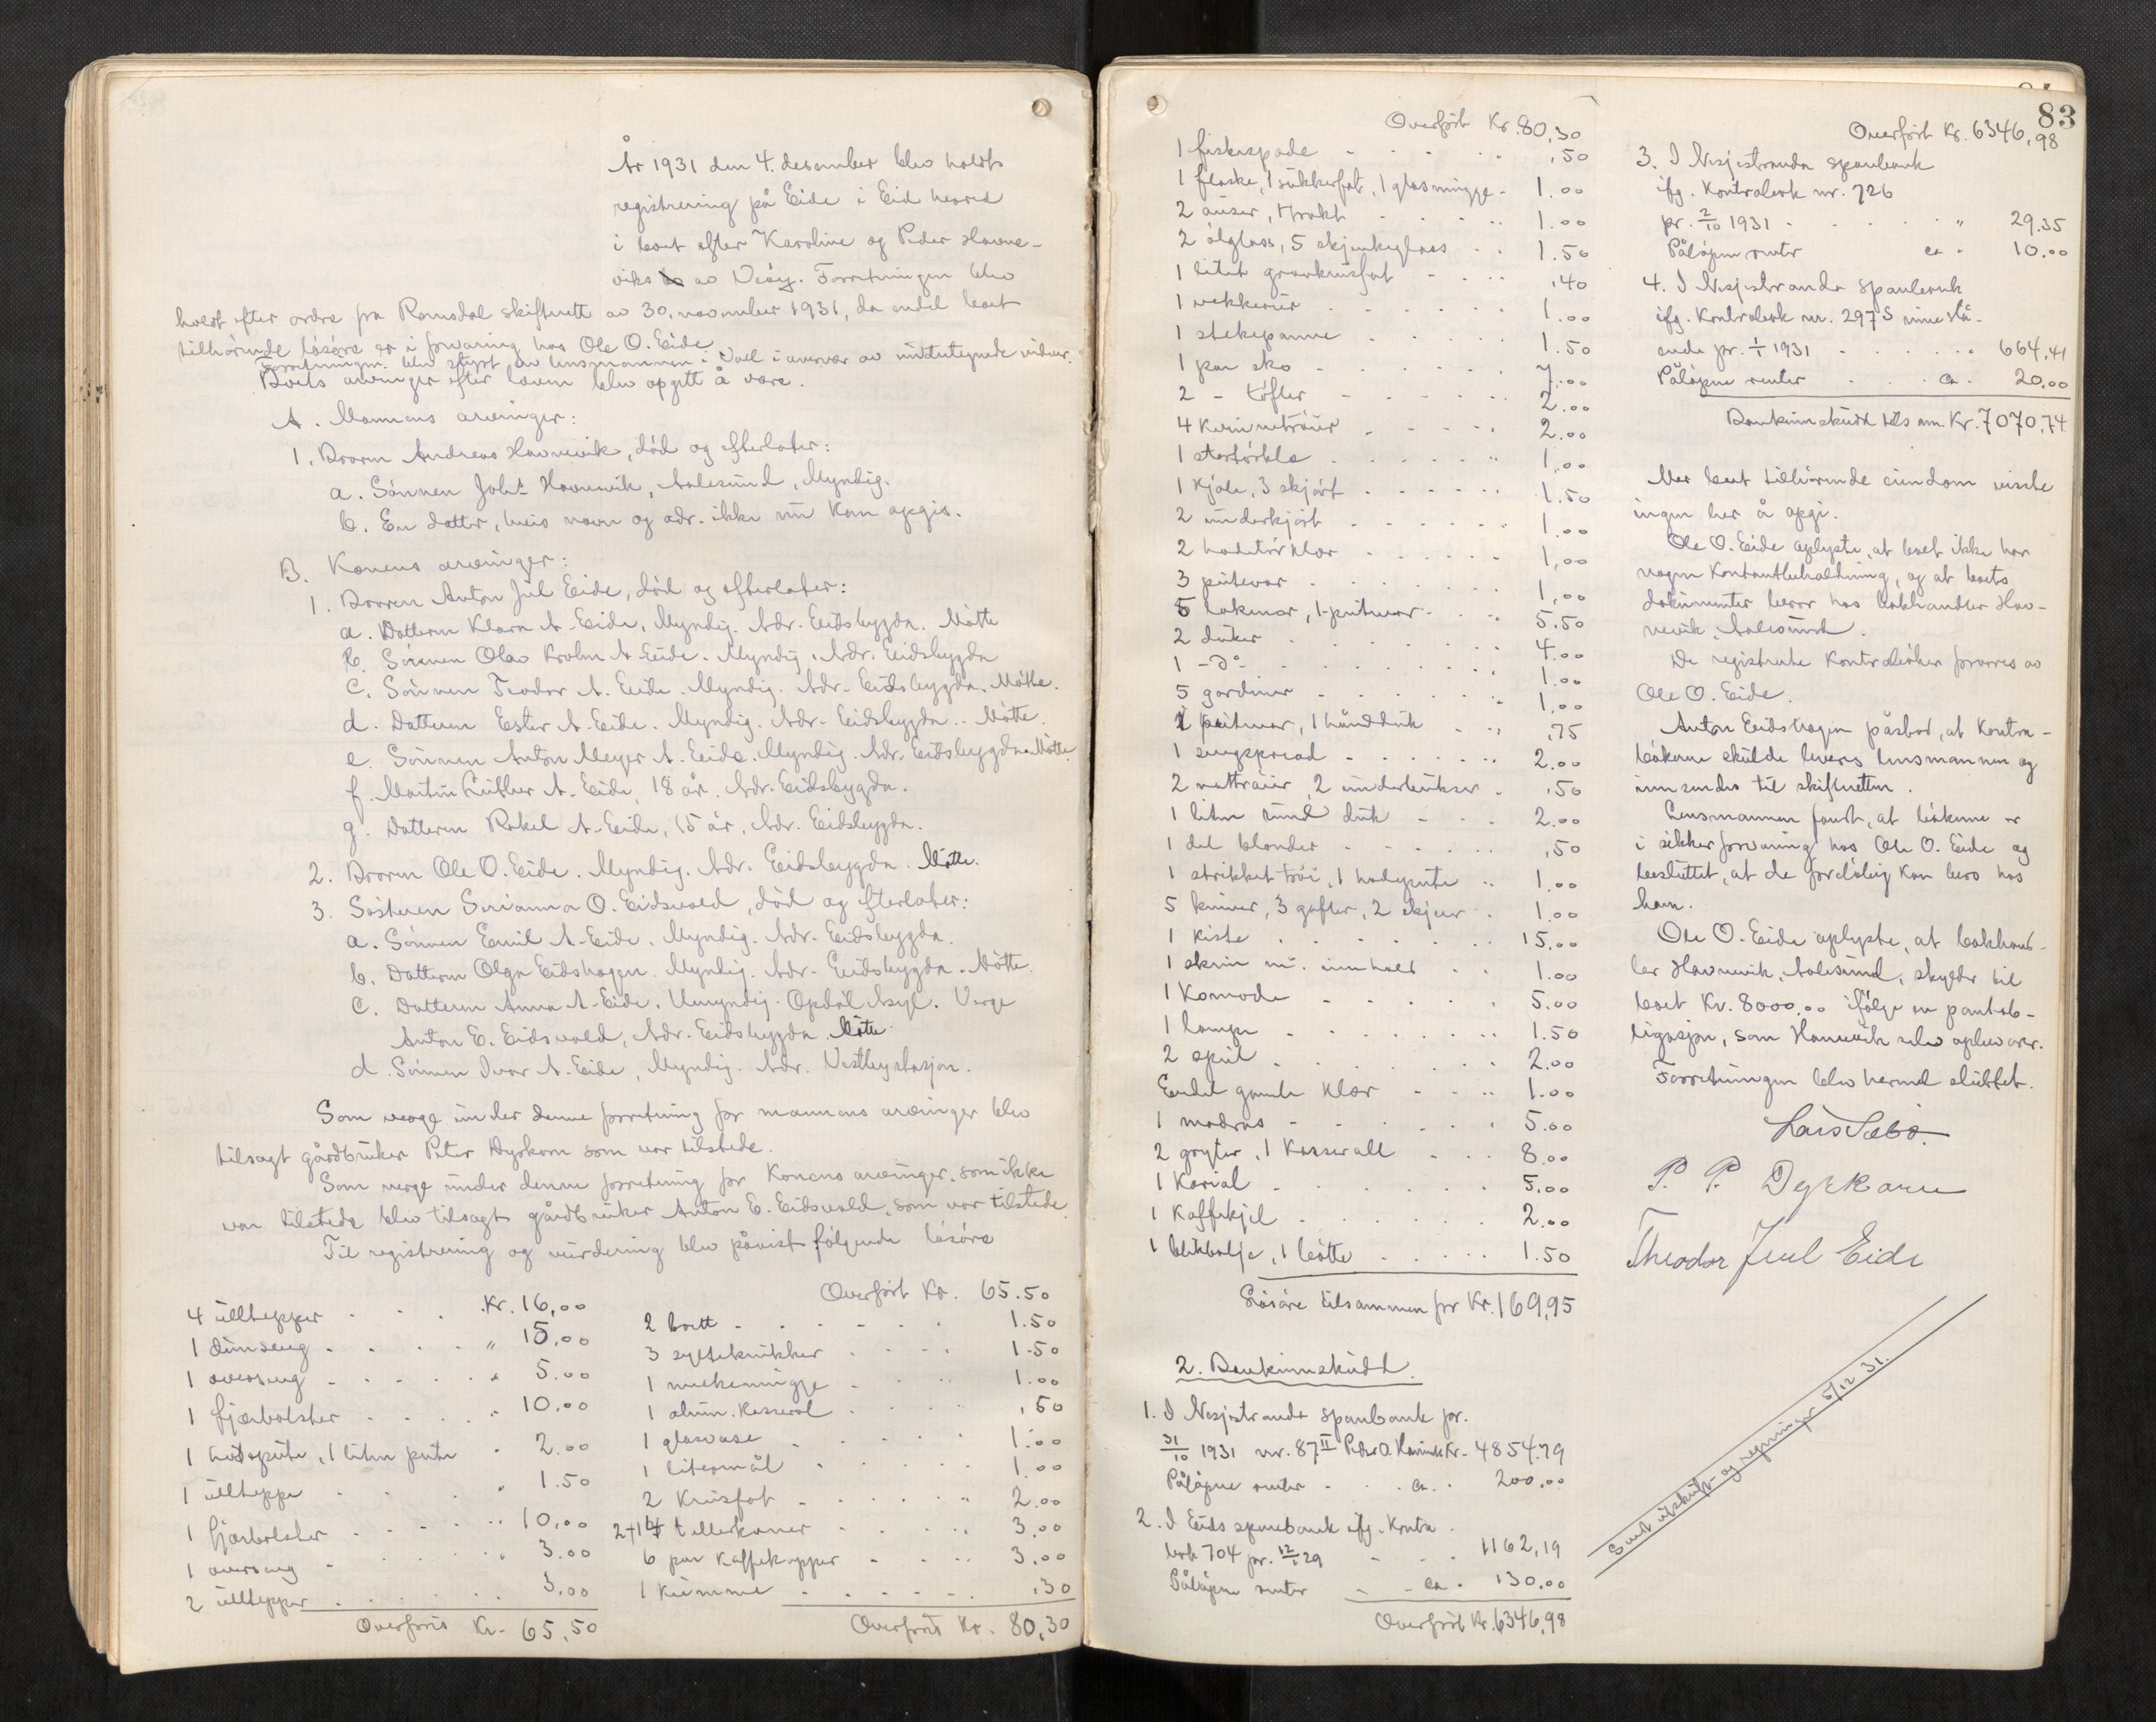 År 1931 den 4. desember blev holdt
registrering på Eide i Eid herred
i boet efter Karoline og Peder Havne-
viks av Veøy. Forretningen blev
holdt efter ordre fra Romsdal skifterett av 30. november 1931, da endel boet
tilhørende løsøre er i forvaring hos Ole O. Eide
Forretningen blev styrt av lensmannen i Voll i overvær av undertegnede vidner.
Boets arvinger efter loven blev opgitt å være.
A. Mannens arvinger:
1. Broren Andreas Havnevik, død og efterlater:
a. Sønnen Johs Havnevik, Aalesund, Myndig.
b. En datter, hvis navn og adr. ikke nu kan opgis.
B. Konens arvinger:
1. Broren Anton Jul Eide, død og efterlater:
a. Datteren Klara A. Eide, Myndig. Adr. Eidsbygda. Møtte
b. Sønnen Olav Krohn A. Eide. Myndig. Adr. Eidsbygda
c. Sønnen Teodor A. Eide. Myndig. Adr. Eidsbygda. Møtte.
d. Datteren Ester A. Eide. Myndig. Adr. Eidsbygda. Møtte.
e. Sønnen Anton Meyer A. Eide. Myndig. Adr. Eidsbygda. Møtte
f. Martin Luther A. Eide, 18 år. Adr. Eidsbygda.
g. Datteren Rakel A. Eide, 15 år. Adr. Eidsbygda.
2. Broren Ole O. Eide. Myndig. Adr. Eidsbygda. Møtte.
3. Søsteren Serianna O. Eidsvold, død og efterlater:
a. Sønnen Emil A. Eide. Myndig. Adr. Eidsbygda.
b. Datteren Olga Eidshagen. Myndig. Adr. Eidsbygda. Møtte.
c. Datteren Anna A. Eide. Umyndig. Opdøl Asyl. Verge
Anton E. Eidsvold, Adr. Eidsbygda. Møtte
d. Sønnen Ivar A. Eide, Myndig. Adr. Vestby stasjon.
Som verge under denne forretning for mannens arvinger blev
tilsagt gårdbruker Peter Dyrkorn som var tilstede.
Som verge under denne forretning for konens arvinger, som ikke
var tilstede blev tilsagt gårdbruker Anton E. Eidsvold, som var tilstede.
Til registrering og vurdering blev påvist følgende løsøre
4 ulltepper . . . Kr. 16,00
1 dunseng . . . " 15,00
1 overseng . . . " 5.00
1 fjærbolster . . . " 10.00
1 hodepute, 1 liten pute " 2.00
1 ullteppe . . . " 1.50
1 fjærbolster . . . " 10,00
1 overseng . . . " 3.00
2 ulltepper . . . 3,00
Overføres Kr. 65,50
Overført Kr. 65.50
2 brett . . . 1.50
3 syltekrukker . . . 1.50
1 melkemugge . . . 1.00
1 alum. kasserol . . . ,50
1 glasvase . . . 1.00
1 litermål . . . 1.00
2 krusfat . . . " 2.00
2+14 tellerkener . . . 3.00
6 par kaffekopper . . . 3.00
1 kumme . . . ,30
Overføres Kr. 80,30
Overført Kr. 80,30
1 fiskespade . . . " ,50
1 flaske, 1 sukkerfat, 1 glasmugge - 1.00
2 auser, 1 trakt . . . 1.00
2 ølglass, 5 skjenkeglass . . 1.50
1 litet krusfat . . . ,40
1 vekkerur . . . 1.00
1 stekepanne . . . 1.50
1 par sko . . . 7.00
2 - tøfler . . . 2.00
4 kvinnetrøier . . . 2.00
1 stortørkle . . . 1.00
1 kjole, 3 skjørt . . . 1.50
2 underkjørt . . . 1.00
2 hodetørklær . . . 1,00
3 putevar . . . 1,00
5 lakener, 1 putevar . . . 5.50
2 duker . . . 4.00
1 - do . . . 1.00
5 gardiner . . . " 1,00
1 putevar, 1 håndduk . . ,75
1 sengspread . . . 2.00
2 nattrøier, 2 underbukser . ,50
1 liten rund duk . . . 2.00
1 del blonder . . . ,50
1 strikket trøi, 1 hodepute " 1.00
5 kniver, 3 gafler, 2 skjeer . 1.00
1 kiste . . . 15.00
1 skrin m. innhold . . 1.00
1 komode . . . 5.00
1 lampe . . . 1.50
2 speil . . . 2.00
Endel gamle klær . . . 1.00
1 madras . . . 5.00
2 gryter, 1 kasserolle . . . 8.00
1 . . . 5.00
1 kaffekjel . . . 2.00
1 blikbalje, 1 bøtte . . . 1.50
Løsøre tilsammen for Kr. 169,95
2. Bankinnskudd.
1. I Nesjestranda sparebank pr.
31/10 1931 nr. 87 II Peder O. Havnevik Kr. 4854.79
Påløpne renter . . ca. . 200.00
2. I Eids sparebank ifg. kontra
bok 704 pr. 12/1 29 . . . 1162,19
Påløpne renter . . ca . 130.00
Overført Kr. 6346,98
83
Overført Kr. 6346,98
3. I Nesjestranda sparebank
ifg. kontrabok nr. 726
pr. 2/10 1931 . . . " 29.35
Påløpne renter ca. 10.00
4. I Nesjestranda sparebank
ifg. kontrabok nr. 297 S innestå-
ende pr. 1/1 1931 . . . 664,41
Påløpne renter . . ca. 20.00
Bankinnskudd tils. Kr. 7070,74
Mer boet tilhørende eiendom visste
ingen her å opgi.
Ole O. Eide oplyste, at boet ikke har
nogen kontantbeholdning, og at boets
dokumenter beror hos bokhandler Hav-
nevik, Aalesund.
De registrerte kontrabøker forvares av
Ole O. Eide.
Anton Eidshagen påstod, at kontra-
bøkene skulde leveres lensmannen og
innsendes til skifteretten.
Lensmannen fandt, at bøkene er
i sikker forvaring hos Ole O. Eide og
besluttet, at de foreløbig kan bero hos
ham.
Ole O. Eide oplyste, at bokhand-
ler Havnevik, Aalesund, skylder til
boet Kr. 8000.00 ifølge en pantob-
ligasjon, som Havnevik selv opbevarer.
Forretningen blev hermed sluttet.
Lars Sæbø.
P. P. Dyrkorn
Theodor Juul Eide
Sendt utskrift og regninger 5/12 31.